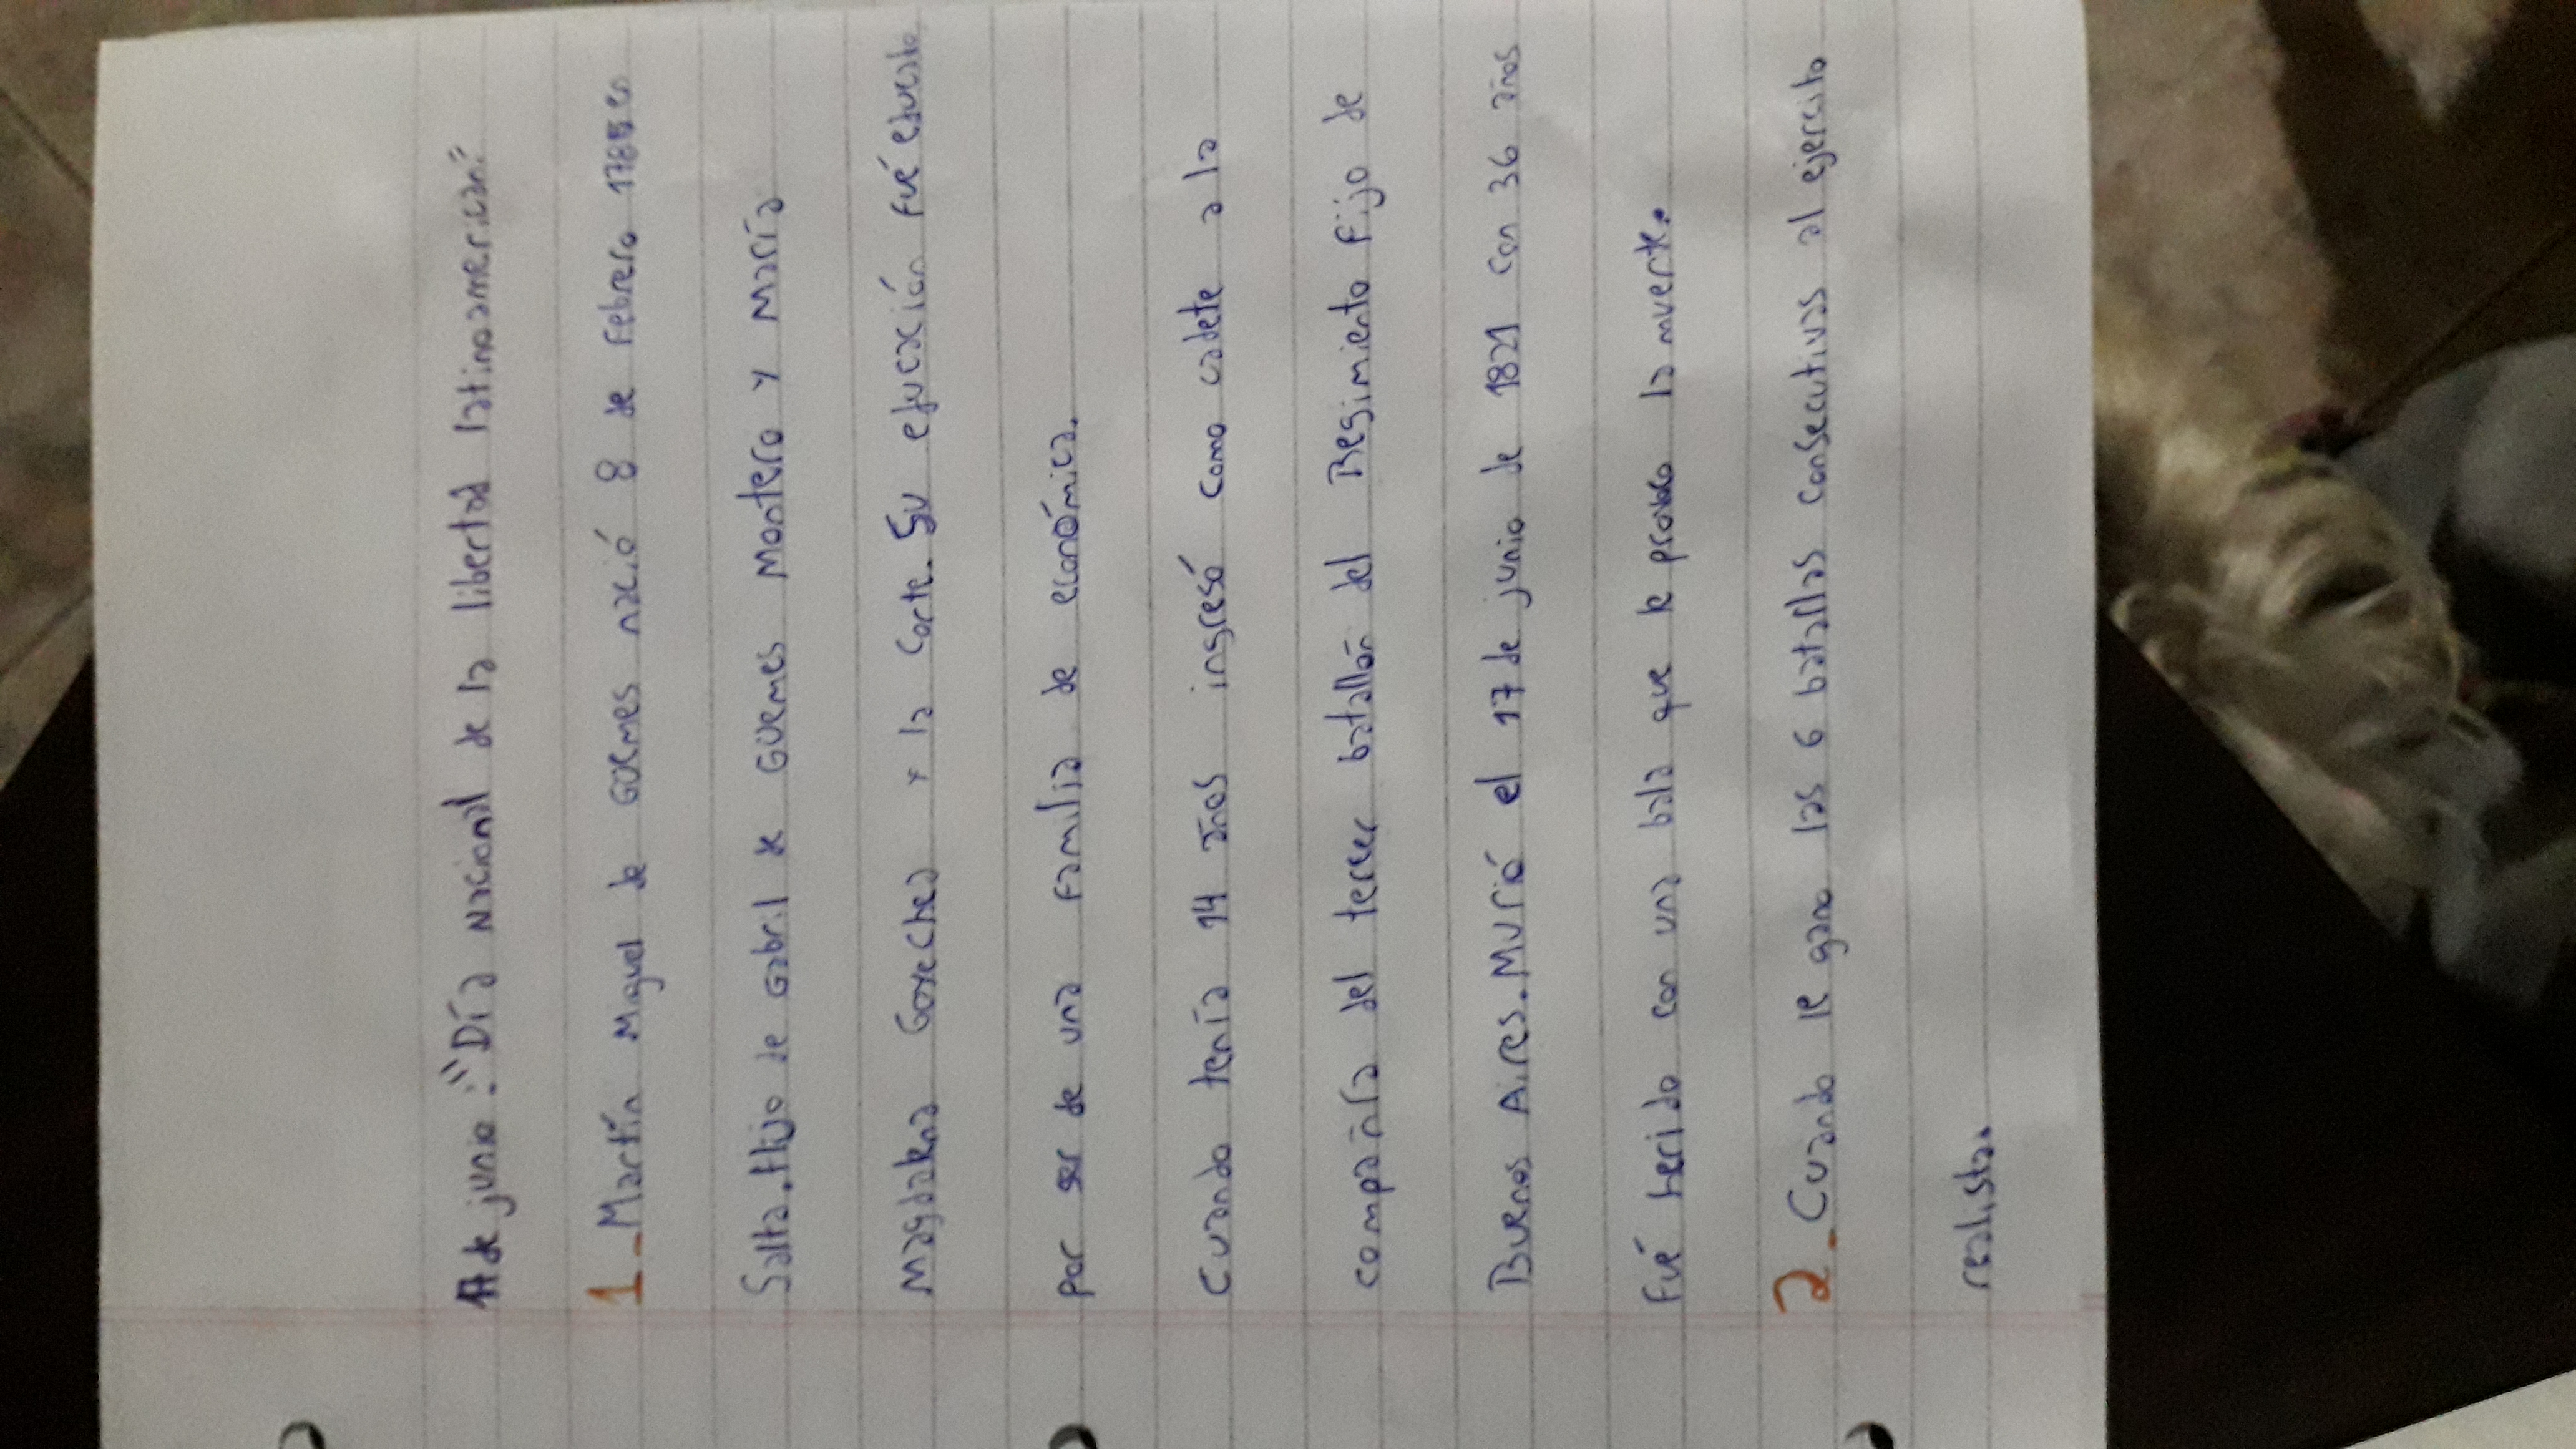 17 de junio: "Día Nacional de la libertad latinoamerican."
1_Martín Miguel de Güemes nació 8 de Febrero 1785 en
Salta. Hijo de Gabril de Güemes Montero y María
Magdalena Goyechea y la Corte. Su educación fué educado
por ser de una familia de económica.
Cuando tenía 14 años ingresó como cadete a la
compañía del tercer batallón del Regimiento Fijo de
Buenos Aires. Murió el 17 de junio de 1821 con 36 años
Fué herido con una bala que le provoco la muerte.
2_Cuando le gano las 6 batallas consecutivas al ejercito
realista.